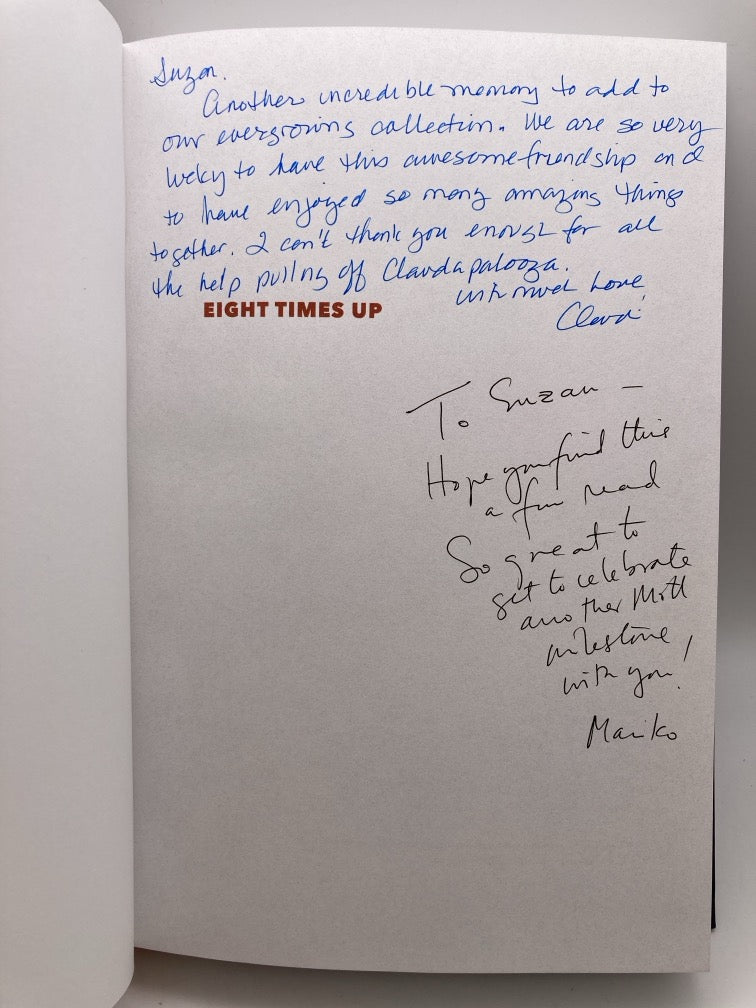 Suzan.
Another incredible memory to add to
our evergrowing collection. We are so very
lucky to have this awesome friendship and
to have enjoyed so many amazing things
together. I can't thank you enough for all
the help pulling off Claudapalooza.
with much Love,
EIGHT TIMES UP
To Suzan —
Hope you find this
a fun read
So great to
get to celebrate
another
milestone
with you!
Mariko